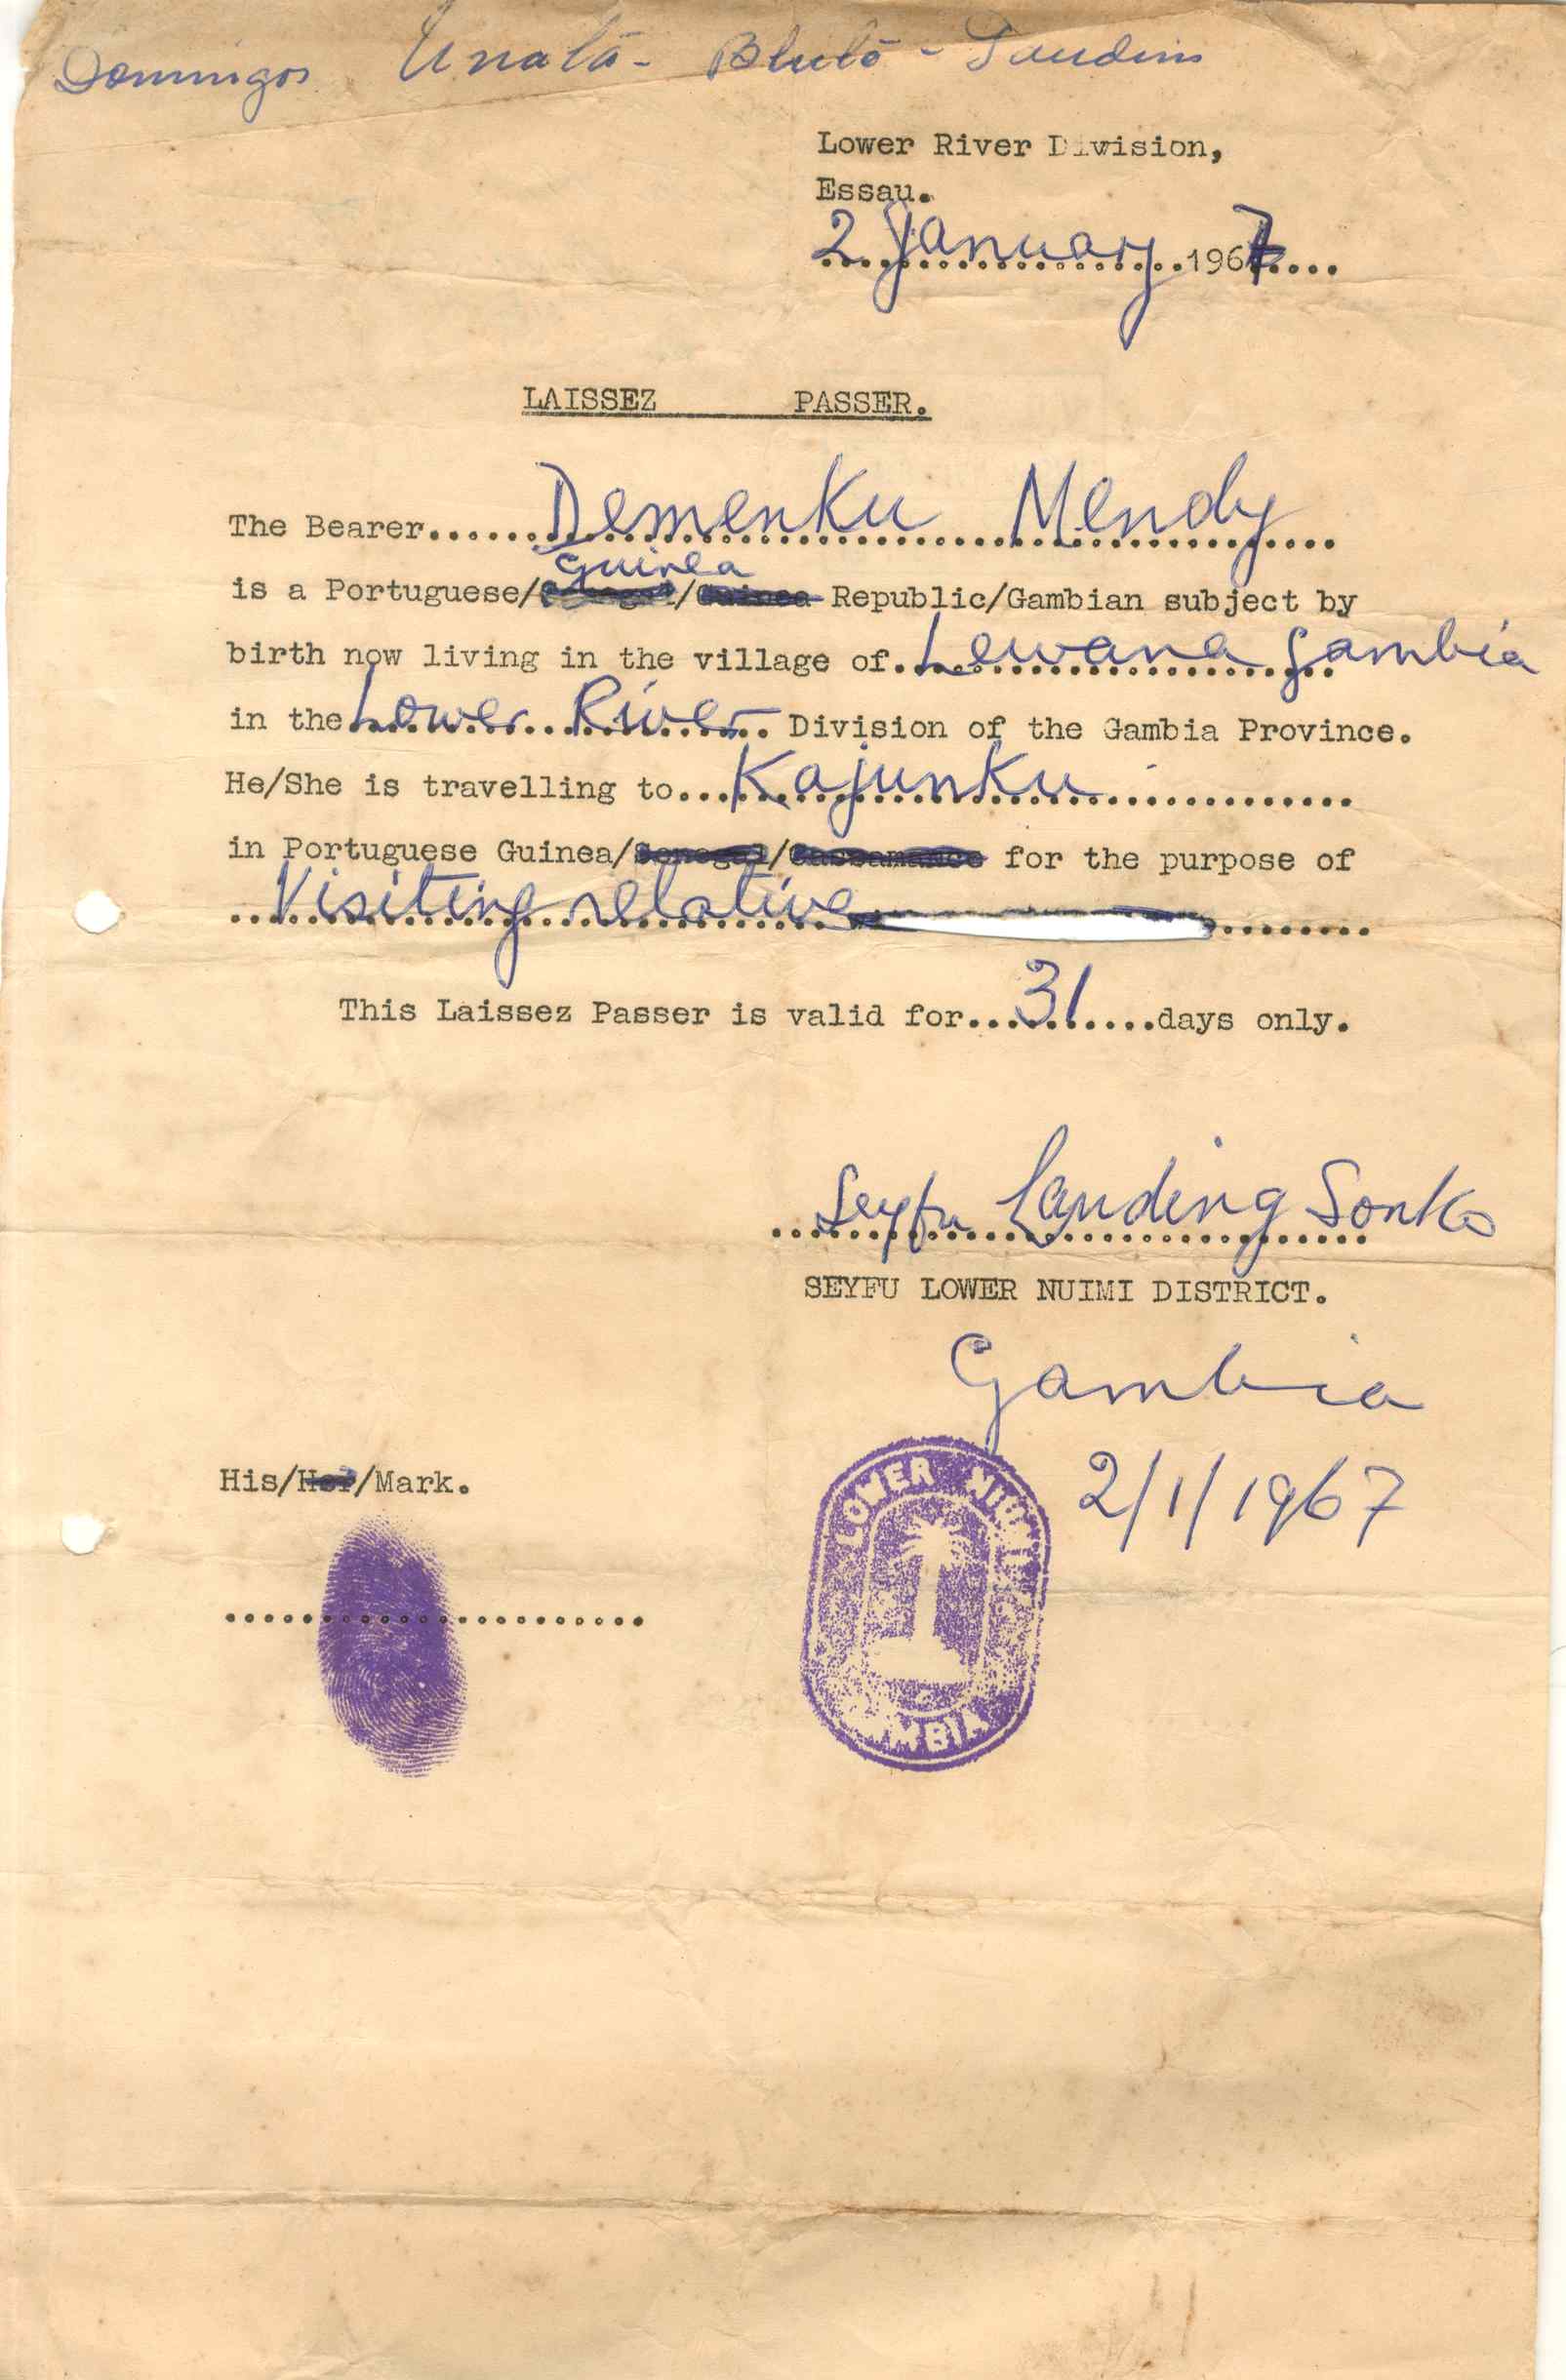 Domingos Unatô - Blutô - Saudim
Lower River Division,
Essau.
2 January 1967
LAISSEZ PASSER.
The Bearer......Demenku Mendy......
Guinea
is a Portuguese/Senegal/Guinea Republic/Gambian subject by
birth now living in the village of.Lewana Gambia
in the Lower River Division of the Gambia Province.
He/She is travelling to...Kajunku......
in Portuguese Guinea/Senegal/Cassamance for the purpose of
...Visiting relative......
This Laissez Passer is valid for...31....days only.
Seyfu Landing Sonko
SEYFU LOWER NUIMI DISTRICT.
Gambia
2/1/1967
His/Her/Mark.
LOWER NIUMI
GAMBIA